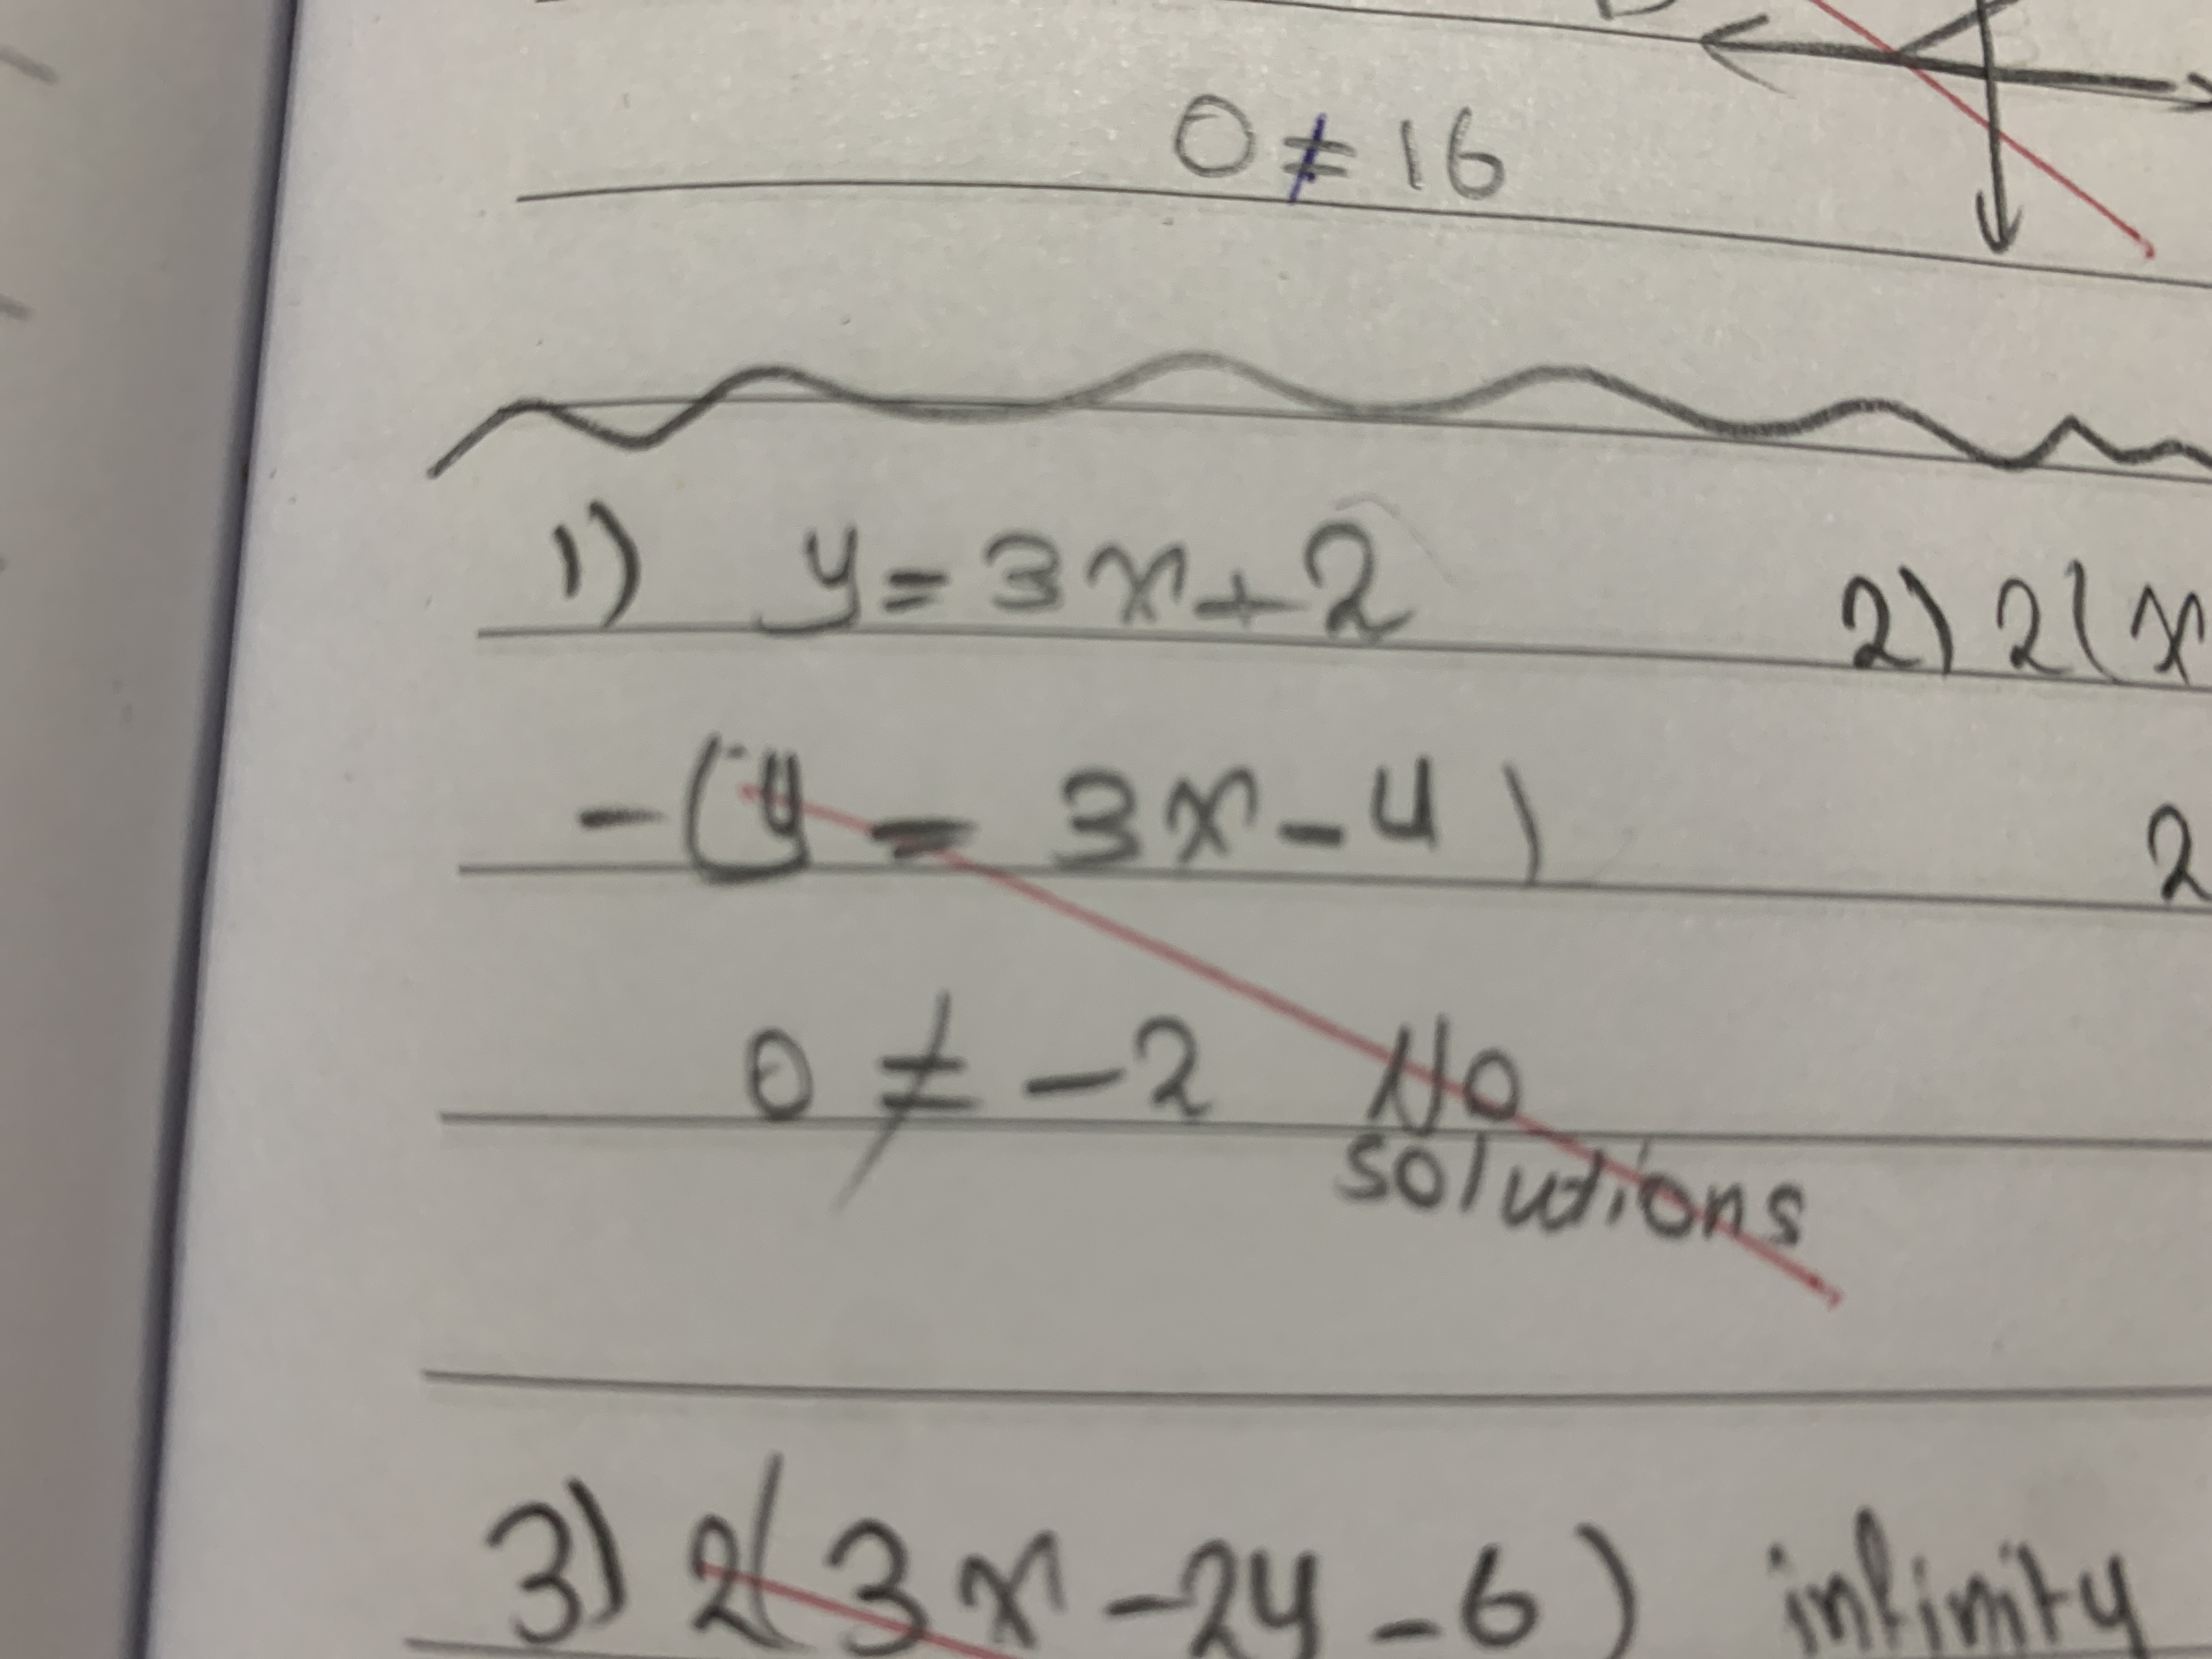 0 ≠ 16
1) y = 3x + 2
2) 2(x
-(y = 3x - 4)
2
0 ≠ -2 No
solutions
3) 2(3x - 2y - 6) infinity